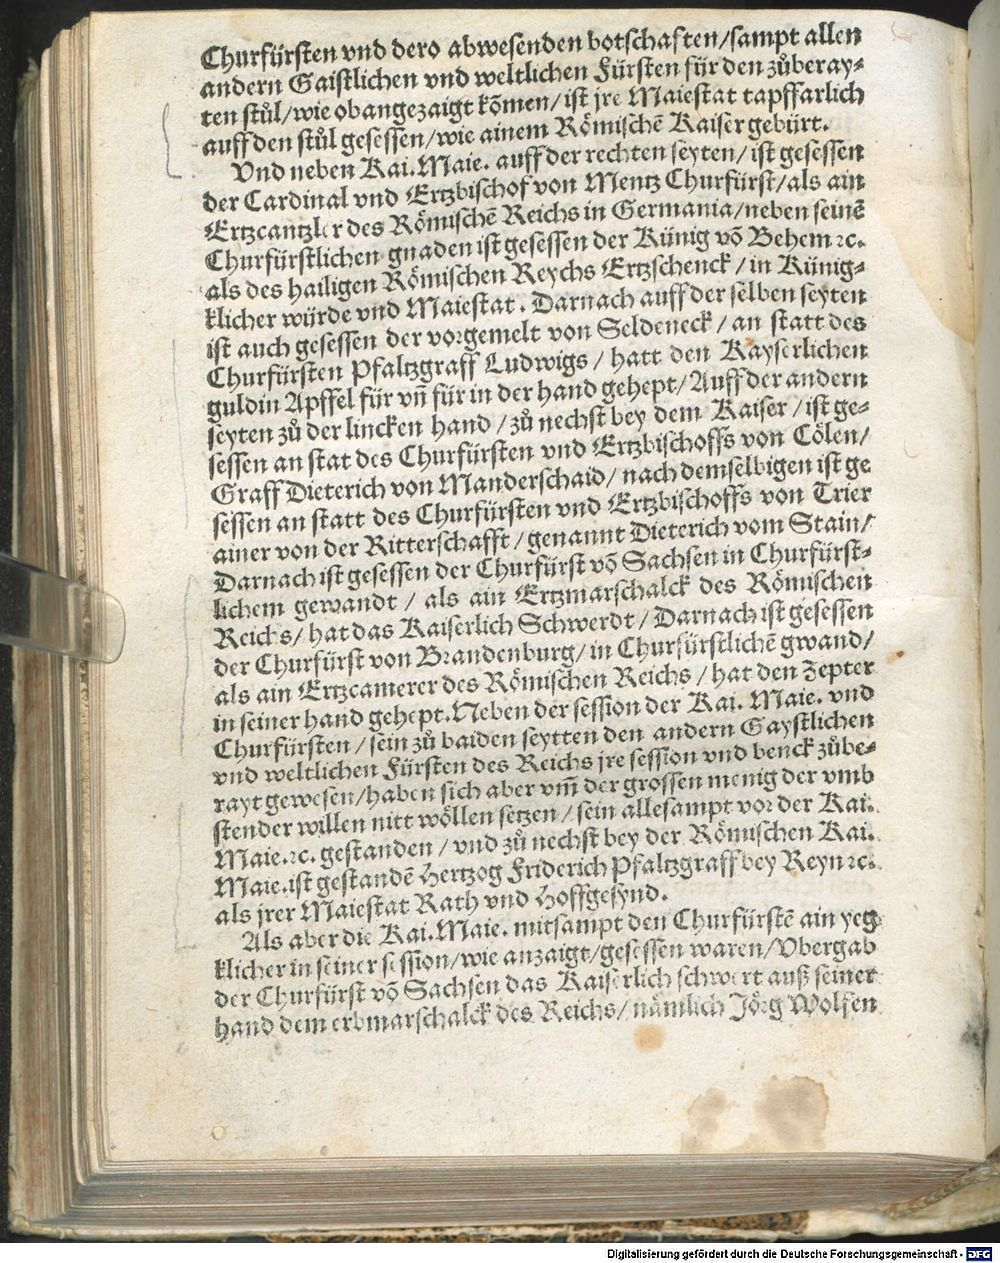 Churfürsten vnd dero abwesenden botschafften/sampt allen
andern Gaistlichen vnd weltlichen Fürsten für den zůberay⸗
ten stůl/wie obangezaigt kõmen/ist jre Maiestat tapffarlich
auff den stůl gesessen/wie ainem Römischẽ Kaiser gebürt.
Vnd neben Kai. Maie. auff der rechten seyten/ist gesessen
der Cardinal vnd Ertzbischof von Mentz Churfürst/als ain
Ertzcantzler des Römischẽ Reichs in Germania/neben seinẽ
Churfürstlichen gnaden ist gesessen der Künig võ Behem ꝛc.
als des hailigen Römischen Reychs Ertzschenck/in Künig⸗
klicher würde vnd Maiestat. Darnach auff der selben seyten
ist auch gesessen der vorgemelt von Seldeneck/an statt des
Churfürsten Pfaltzgraff Ludwigs/hatt den Kayserlichen
guldin Apffel für vñ für in der hand gehept/Auff der andern
seyten zů der lincken hand/zů nechst bey dem Kaiser/ist ge⸗
sessen an stat des Churfürsten vnd Ertzbischoffs von Cölen/
Graff Dieterich von Manderschaid/nach demselbigen ist ge
sessen an statt des Churfürsten vnd Ertzbischoffs von Trier
ainer von der Ritterschafft/genannt Dieterich vom Stain/
Darnach ist gesessen der Churfürst võ Sachsen in Churfürst⸗
lichem gewandt/als ain Ertzmarschalck des Römischen
Reichs/hat das Kaiserlich Schwerdt/Darnach ist gesessen
der Churfürst von Brandenburg/in Churfürstlichẽ gwand/
als ain Ertzcamerer des Römischen Reichs/hat den Zepter
in seiner hand gehept. Neben der session der Kai. Maie. vnd
Churfürsten/sein zů baiden seytten den andern Gaystlichen
vnd weltlichen Fürsten des Reichs jre session vnd benck zůbe⸗
rayt gewesen/haben sich aber vm̃ der grossen menig der vmb
stender willen nitt wöllen setzen/sein allesampt vor der Kai.
Maie. ꝛc. gestanden/vnd zů nechst bey der Römischen Kai.
Maie. ist gestandẽ Hertzog Friderich Pfaltzgraff bey Reyn ꝛc.
als jrer Maiestat Rath vnd Hoffgesynd.
Als aber die Kai. Maie. mitsampt den Churfürstẽ ain yeg
klicher in seiner session/wie anzaigt/gesessen waren/Vbergab
der Churfürst võ Sachsen das Kaiserlich schwert auß seiner
hand dem erbmarschalck des Reichs/nämlich Jörg Wolfen
Digitalisierung gefördert durch die Deutsche Forschungsgemeinschaft - DFG